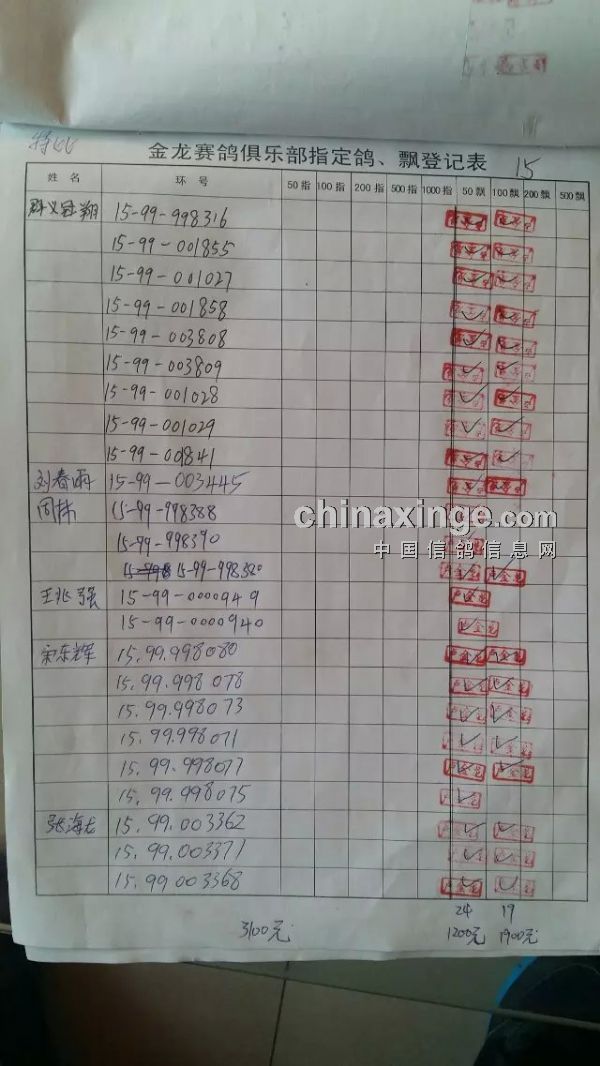 特比
金龙赛鸽俱乐部指定鸽、飘登记表 15
姓 名 环 号 50指 100指 200 指 500指 1000指 50飘 100飘 200飘 500飘
15-99-998316
15-99-001855
15-99-001027
15-99-001858
15-99-003808
15-99-003809
15-99-001028
15-99-001029
15-99-001841
刘春雨 15-99-003445
周林 15-99-998388
15-99-998390
15-99-998380
王兆强 15-99-0000949
15-99-0000940
宋东辉 15.99.998080
15.99.998078
15.99.998073
15.99.998071
15.99.998077
15.99.998075
张海龙 15.99.003362
15.99.003371
15.99.003368
24 19
3100元 1200元 1900元
chinaxinge.com
中国信鸽信息网